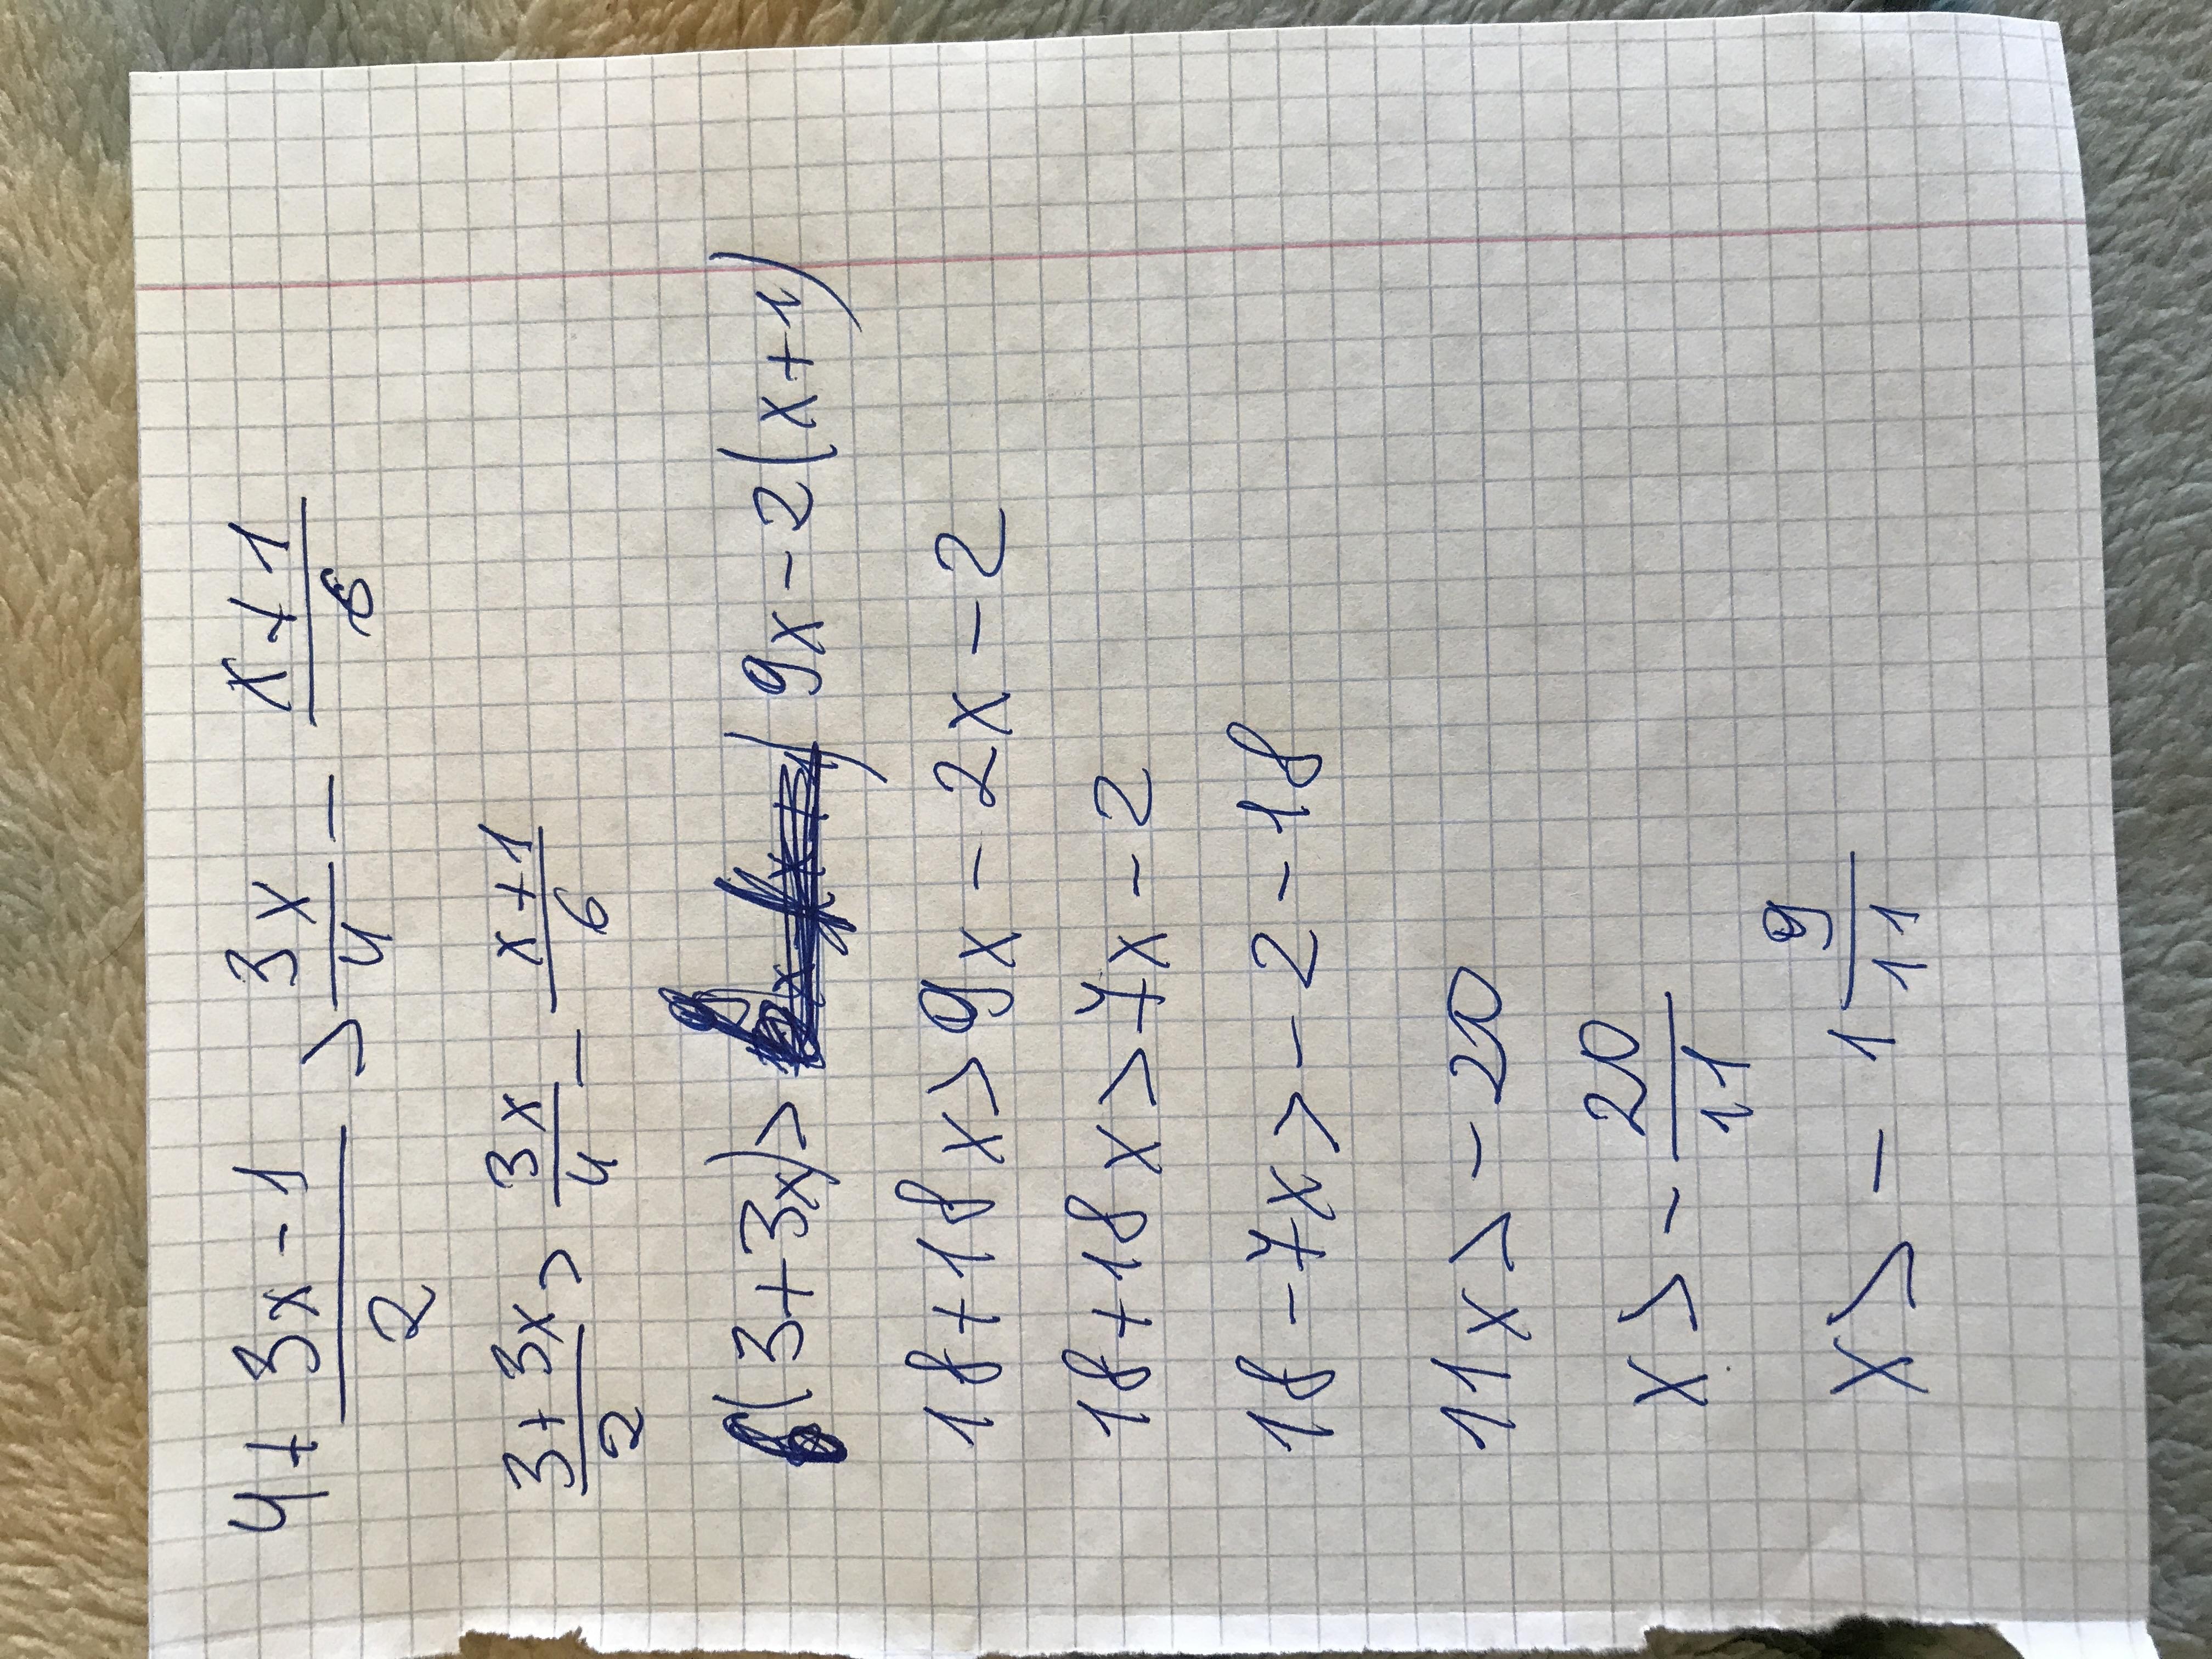 4 + (3x - 1)/2 > 3x/4 - (x + 1)/6
(3 + 3x)/2 > 3x/4 - (x + 1)/6
6(3 + 3x) > 9x - 2(x + 1)
18 + 18x > 9x - 2x - 2
18 + 18x > 7x - 2
18 - 7x > - 2 - 18
11x > - 20
x > - 20/11
x > - 1 9/11